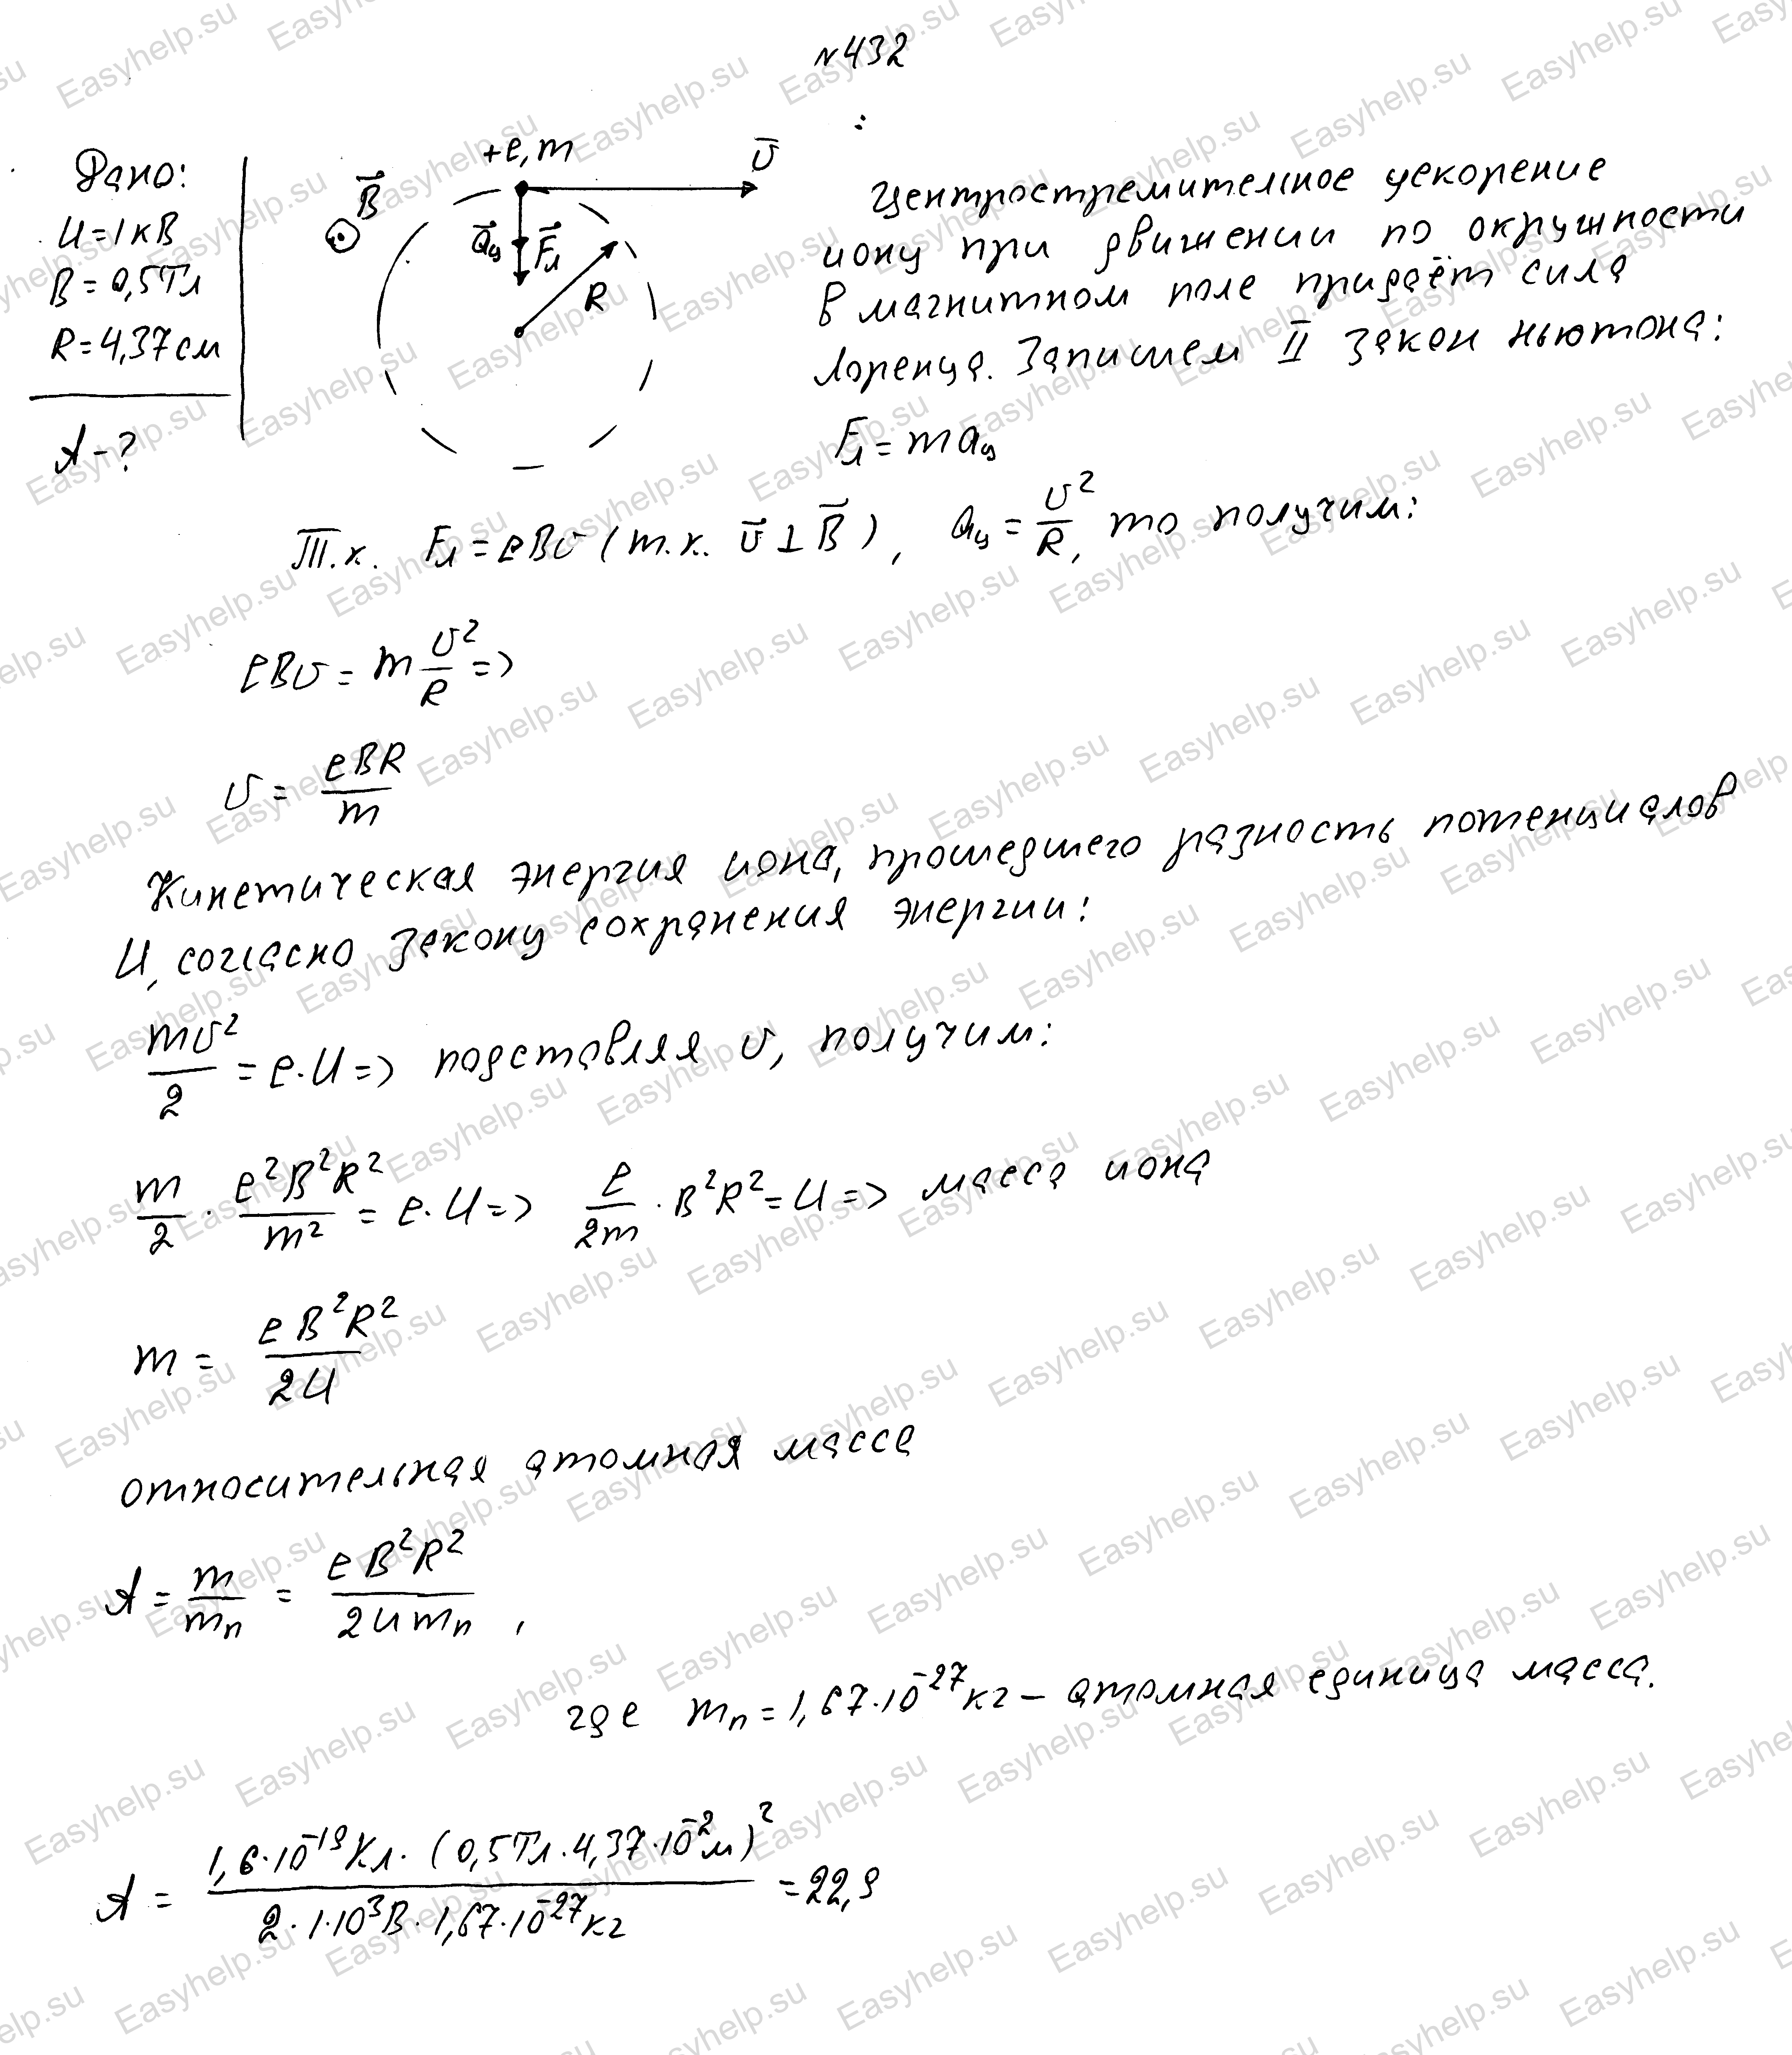 №432
Дано:
U=1кВ
B=0,5Тл
R=4,37см
A-?
+e, m
v̄
B⃗
a⃗ц
F⃗л
R
:
Центростремительное ускорение
иону при движении по окружности
в магнитном поле придаёт сила
Лоренца. Запишем II закон Ньютона:
Fл = maц
Т.к. Fл = eBv (т.к. v⃗ ⊥ B⃗), aц = v²/R, то получим:
eBv = m v²/R =>
v = eBR/m
Кинетическая энергия иона, прошедшего разность потенциалов
U, согласно закону сохранения энергии:
mv²/2 = e·U => подставляя v, получим:
m/2 · e²B²R²/m² = e·U => e/2m · B²R² = U => масса иона
m = eB²R²/2U
относительная атомная масса
A = m/mп = eB²R²/2Umп ,
где mп = 1,67·10⁻²⁷кг – атомная единица масса.
A = 1,6·10⁻¹⁹Кл·(0,5Тл·4,37·10⁻²м)²/2·1·10³В·1,67·10⁻²⁷кг = 22,9
Easyhelp.su